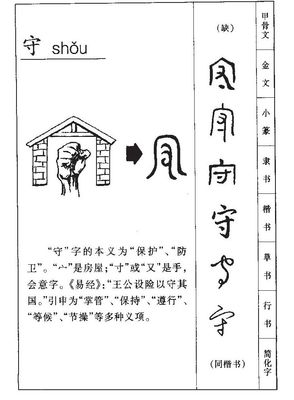 守 shǒu
“守”字的本义为“保护”、“防
卫”。“宀”是房屋;“寸”或“又”是手,
会意字。《易经》:“王公设险以守其
国。”引申为“掌管”、“保持”、“遵行”、
“等候”、“节操”等多种义项。
(缺)
守
守
守
守
守
守
(同楷书)
甲骨文
金文
小篆
隶书
楷书
草书
行书
简化字